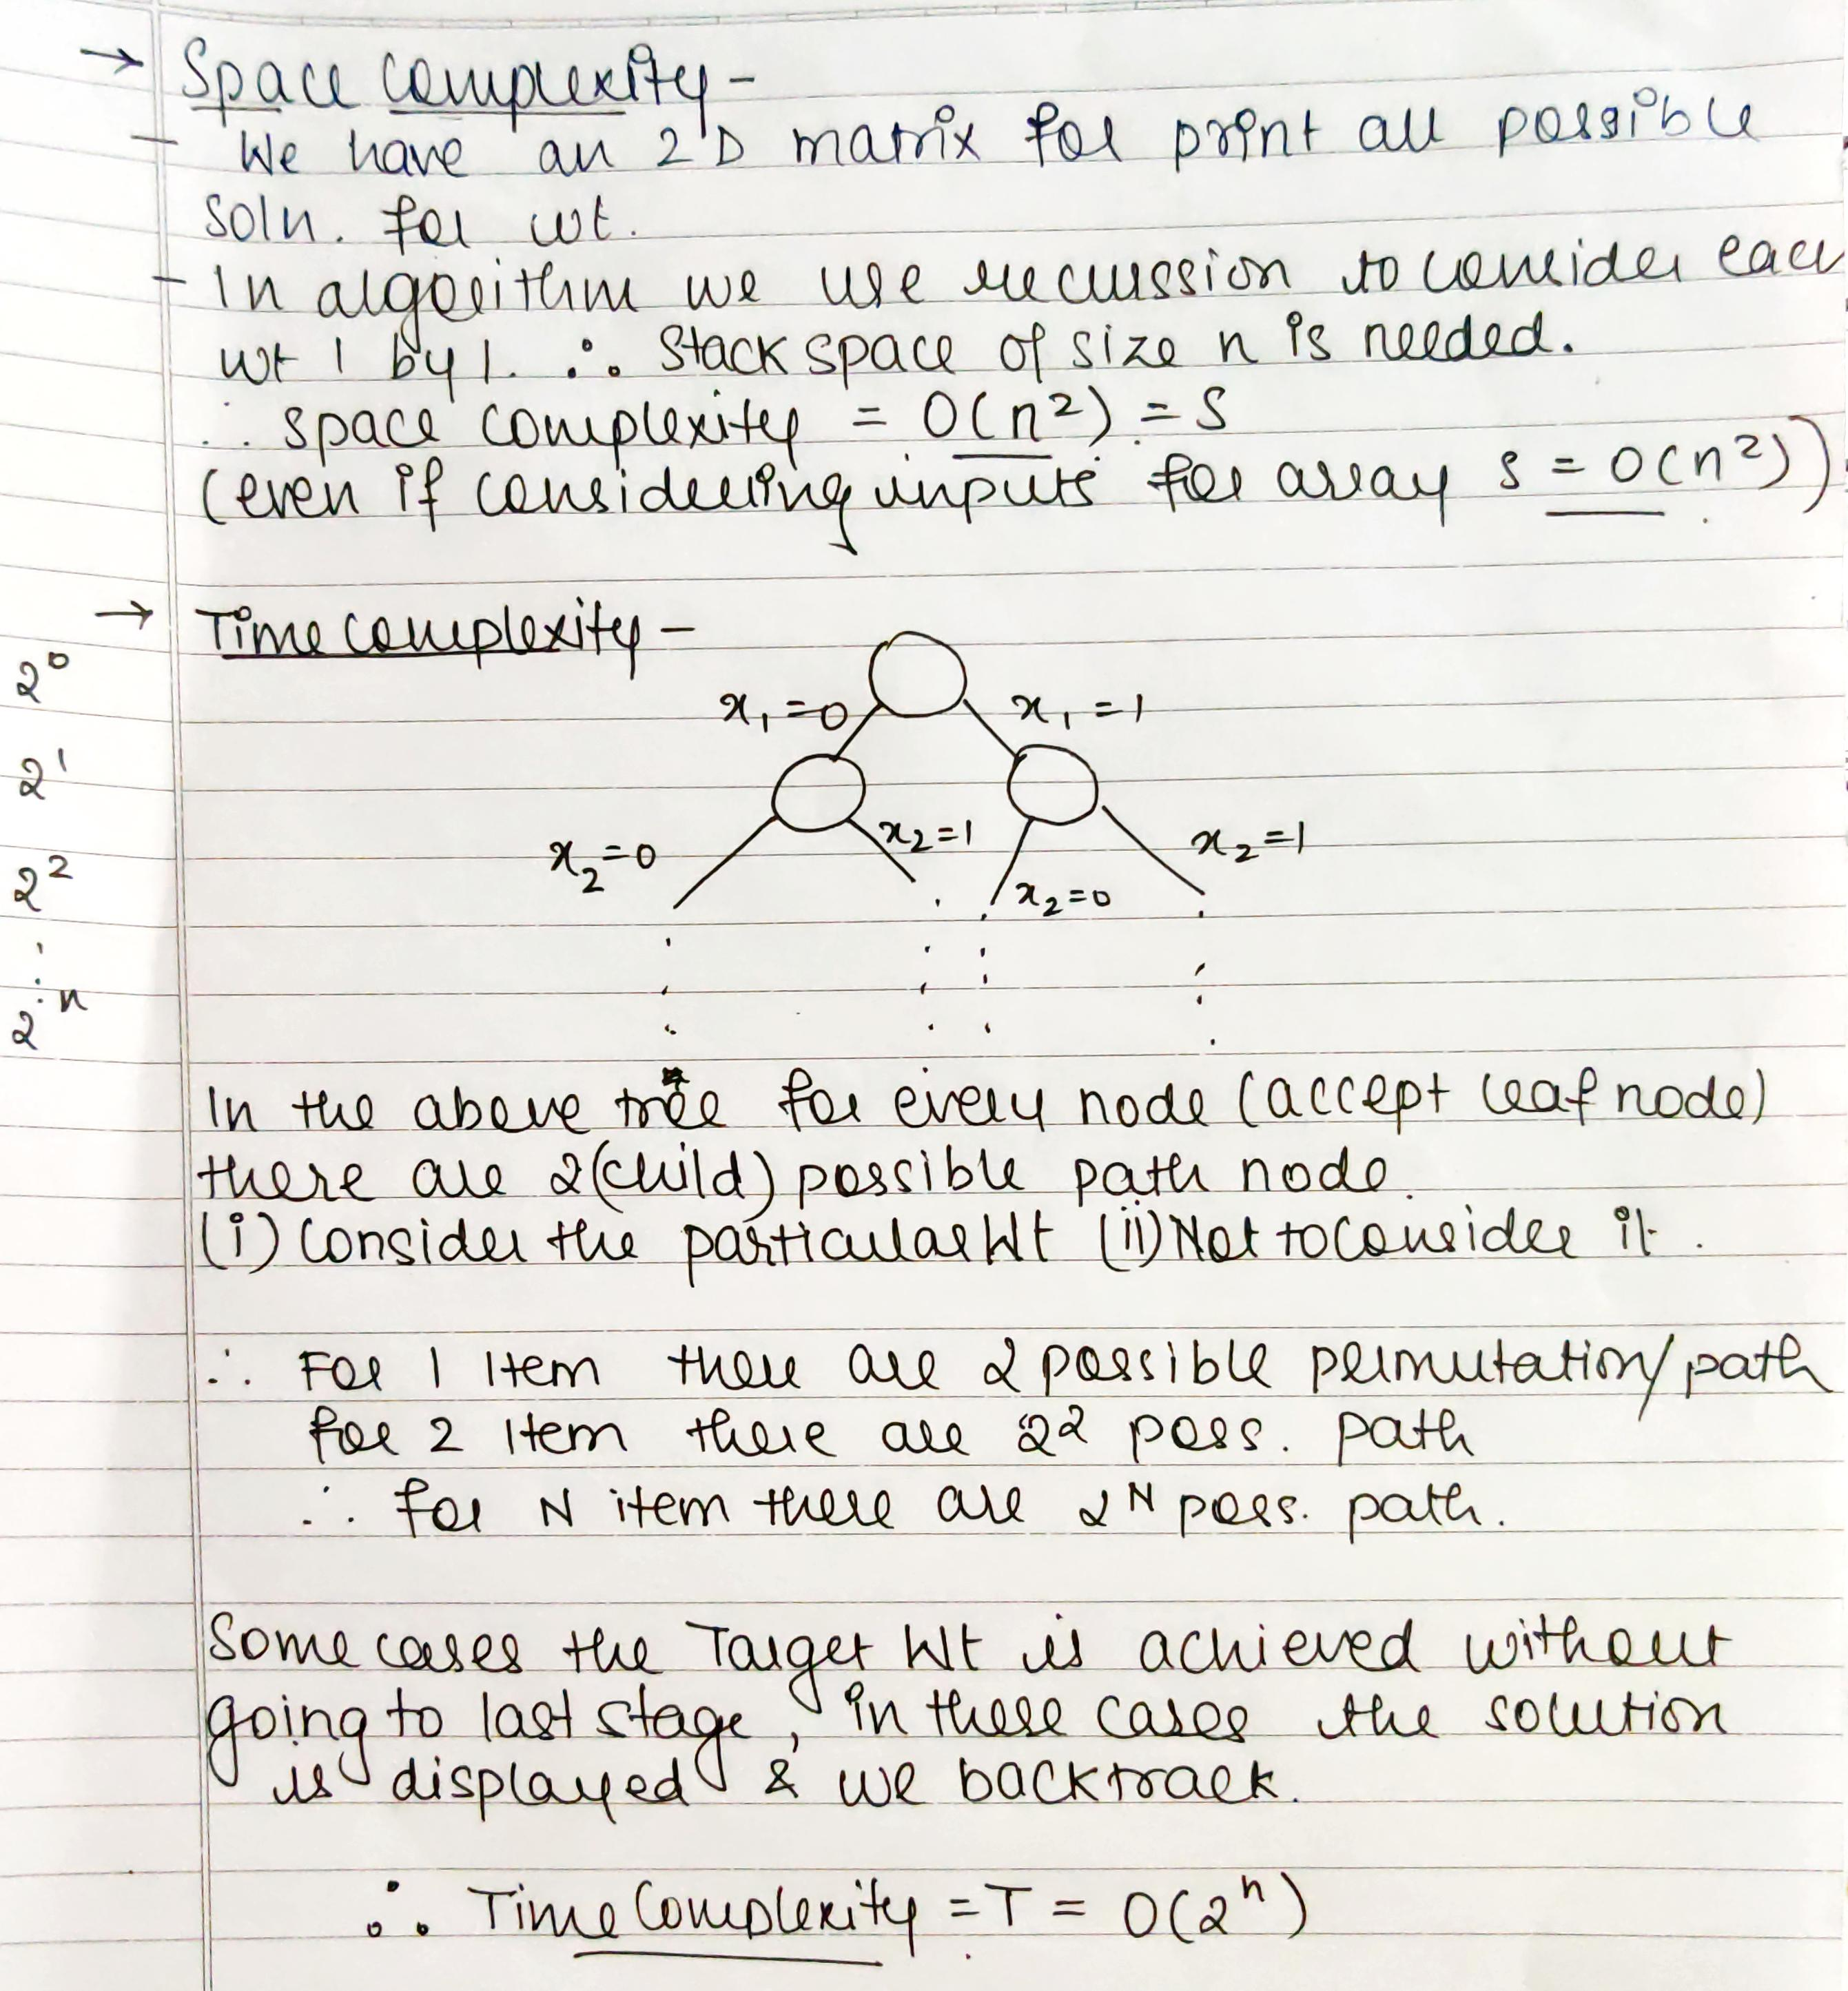 → Space complexity -
- We have an 2D matrix for print all possible
soln. for wt.
- In algorithm we use recurssion to consider each
wt 1 by 1. ∴ Stack space of size n is needed.
∴ space complexity = O(n²) = S
(even if considering inputs for array S = O(n²))
→ Time complexity -
2⁰
x₁=0 x₁=1
2¹
x₂=0 x₂=1 x₂=0 x₂=1
2²
2ⁿ
In the above tree for every node (accept leaf node)
there are 2(child) possible path node.
(i) Consider the particular Wt (ii) Not to consider it.
∴ For 1 Item there are 2 possible permutation/path
for 2 Item there are 2² poss. path
∴ for N item there are 2ᴺ poss. path.
Some cases the Target Wt is achieved without
going to last stage, in these cases the solution
is displayed & we backtrack.
∴ Time Complexity = T = O(2ⁿ)